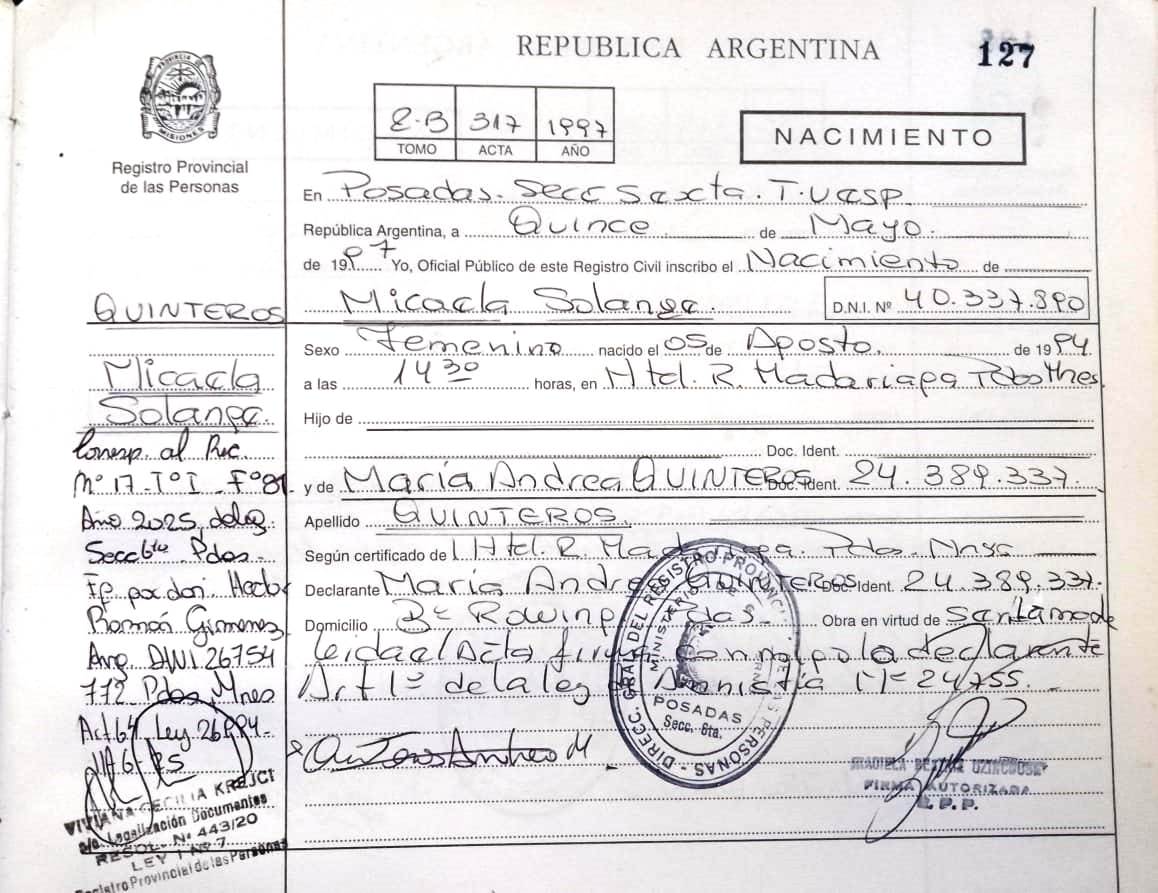 REPUBLICA ARGENTINA
127
PROVINCIA
MISIONES
Registro Provincial
de las Personas
2-B 317 1997
TOMO ACTA AÑO
NACIMIENTO
En Posadas. Secc Sexta.
República Argentina, a Quince de Mayo.
de 1997 Yo, Oficial Público de este Registro Civil inscribo el Nacimiento de
Micaela Solange. D.N.I. Nº 40.337.890
Sexo Femenino nacido el 05 de Agosto. de 1994
a las 14 30 horas, en Htal. R. Madariaga
Hijo de
Doc. Ident.
y de María Andrea QUINTEROS Doc. Ident. 24.389.337.
Apellido QUINTEROS.
Según certificado de Htal. R. Madariaga. Pdas.
Declarante María Andrea QUINTEROS Doc. Ident. 24.389.337.
Domicilio Bº Rowing Pdas. Obra en virtud de
leida el Acta firma conmigo la declarante
Art 1º de la ley de Amnistía Nº 24755.
QUINTEROS
Micaela
Solange.
Corresp. al Rec.
Nº 17 Tº I Fº 81
Año 2025 de la
Secc 6ta Pdas.
Hector
Ramón Gimenez
Arg. DNI 26754
772 Pdas Mnes
Art 64 Ley 26994.
VIVIANA CECILIA KREJCI
a/c Legalización Documentos
RESOL. Nº 443/20
LEY I Nº 7
Registro Provincial de las Personas
DIRECC. GRAL. DEL REGISTRO PROVINCIAL DE LAS PERSONAS
MINISTERIO DE
POSADAS
Secc. 6ta.
FIRMA AUTORIZADA
R.P.P.